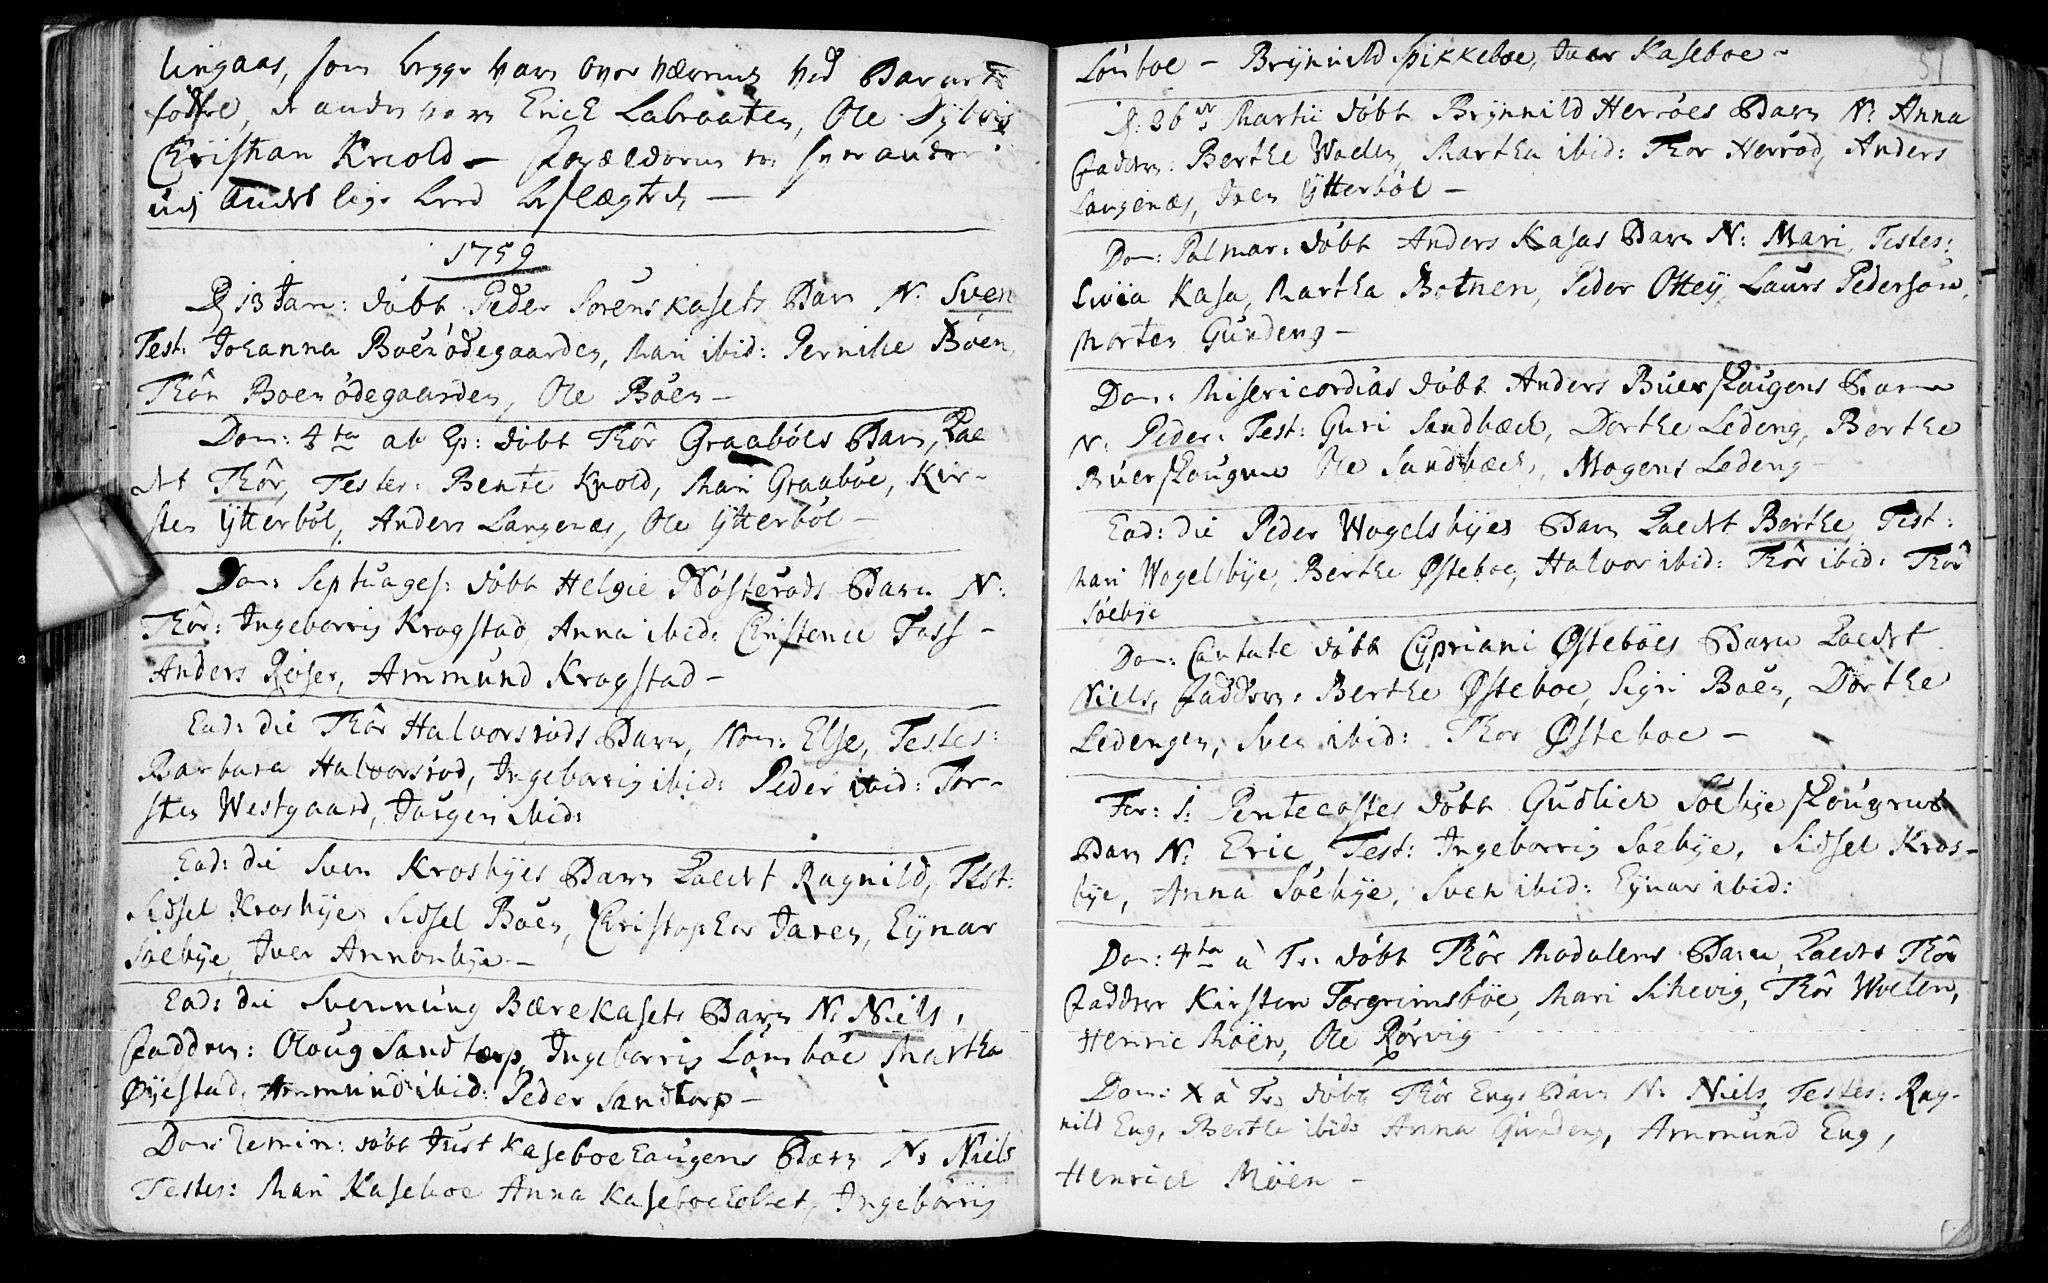 lingaas, som begge vare overværende ved Barnets
födsel, de andre vare Erick Labraaten, Ole
Christian Knold – Forældrene ere hverandre
udj andet lige Leed beslægtede –
1759
D 13 Jan: döbt Peder Sörenskasets Barn N: Sven
Test: Johanna Boenödegaarden, Mari ibid: Pernille Böen,
Thôr Boenödegaarden, Ole Böen –
Dom: 4ta ab Ep: döbt Thôr Graaböes Barn, kal
det Thôr, Testes: Bente Knold, Mari Graaböe, Kir-
sten Ytterböl, Anders Langenæs, Ole Ytterböl –
Dom: Septuages: döbt Helgie Nösteröds Barn N:
Thôr: Ingeborrig Kragstad, Anna ibid: Christence Foss –
Anders Reiser, Ammund Kragstad –
Ead: die Thôr Halvorsröds Barn, Nom: Else, Testes:
Barbara Halvorsröd, Ingeborrig ibid: Peder ibid: Tor-
sten Westgaard, Jörgen ibid:
Ead: die Sven Krosbyes Barn kaldet Ragnild, Test:
Sidsel Krosbye, Sidsel Böen, Christopher Jaren, Eynar
Söebye, Iver Annonbye –
Ead: die Svennung Bærekasets Barn N: Niels,
Faddere: Oloug Sandtorp, Ingeborrig Lönböe Martha
Øyestad, Ammund ibid: Peder Sandtorp –
Dom: Remin: döbt Just Kaseboe Eaugens Barn N: Niels
Testes: Mari Kaseboe Anna Kaseboe, Ingeborrig
Lönboe – Brynnild Spikkeboe, Iver Kaseboe –
51
D: 26de Martii döbt Brynnild Herröes Barn N: Anna
Faddere: Berthe Woelen, Martha ibid: Thor Herröd, Anders
Langenæs, Iver Ytterböl –
Dom: Palmar: döbt Anders Kasas Barn N: Mari, Testes:
Livia Kasa, Martha Botnen, Peder Ottey, Laurs Pedersön,
Morten Gundeng –
Dom: Misericordias döbt Anders Buerskougens Barn
N: Peder: Test: Guri Sandbæck, Dorthe Ledeng, Berthe
Buerskougen Ole Sandbæck, Mogens Ledeng –
Ead: die Peder Wogelsbyes Barn kaldet Berthe, Test:
Mari Wogelsbye, Berthe Østeboe, Halvor ibid: Thôr ibid: Thôr
Söebye
Dom: Cantate döbt Cypriani Østeböes Barn kaldet
Niels, Faddere: Berthe Østeboe, Sigri Böen, Dorthe
Ledengen, Sven ibid: Thor Østeboe –
Fer: 1: Pentecostes döbt Gudlick Söebye skougens
Barn N: Eric Test: Ingeborrig Söebye, Sidsel Kros-
bye, Anna Söebye, Sven ibid: Eynar ibid:
Dom: 4ta à Tr: döbt Thôr Modalens Barn, kaldet Thôr
Faddere Kirsten Torgrimsböe, Mari Sikevig, Thôr Woelen,
Henric Möen, Ole Rörvig
Dom: X à Tr: döbt Thôr Engs Barn N: Niels, Testes: Rag-
nild Eng, Berthe ibid: Anna Gundeng, Ammund Eng,
Henrick Möen –